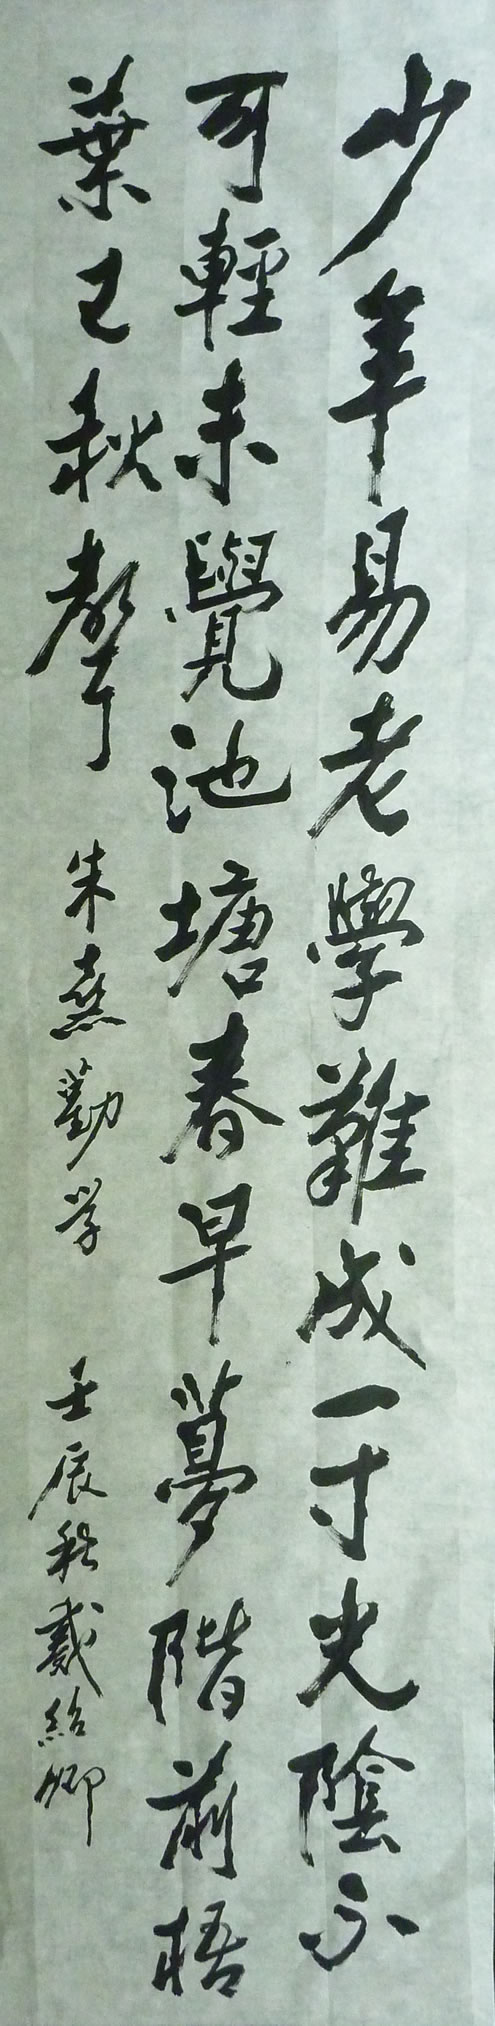 少年易老學難成一寸光陰不
可輕未覺池塘春早夢階前梧
葉已秋聲
朱熹勸学
壬辰秋戴紹卿